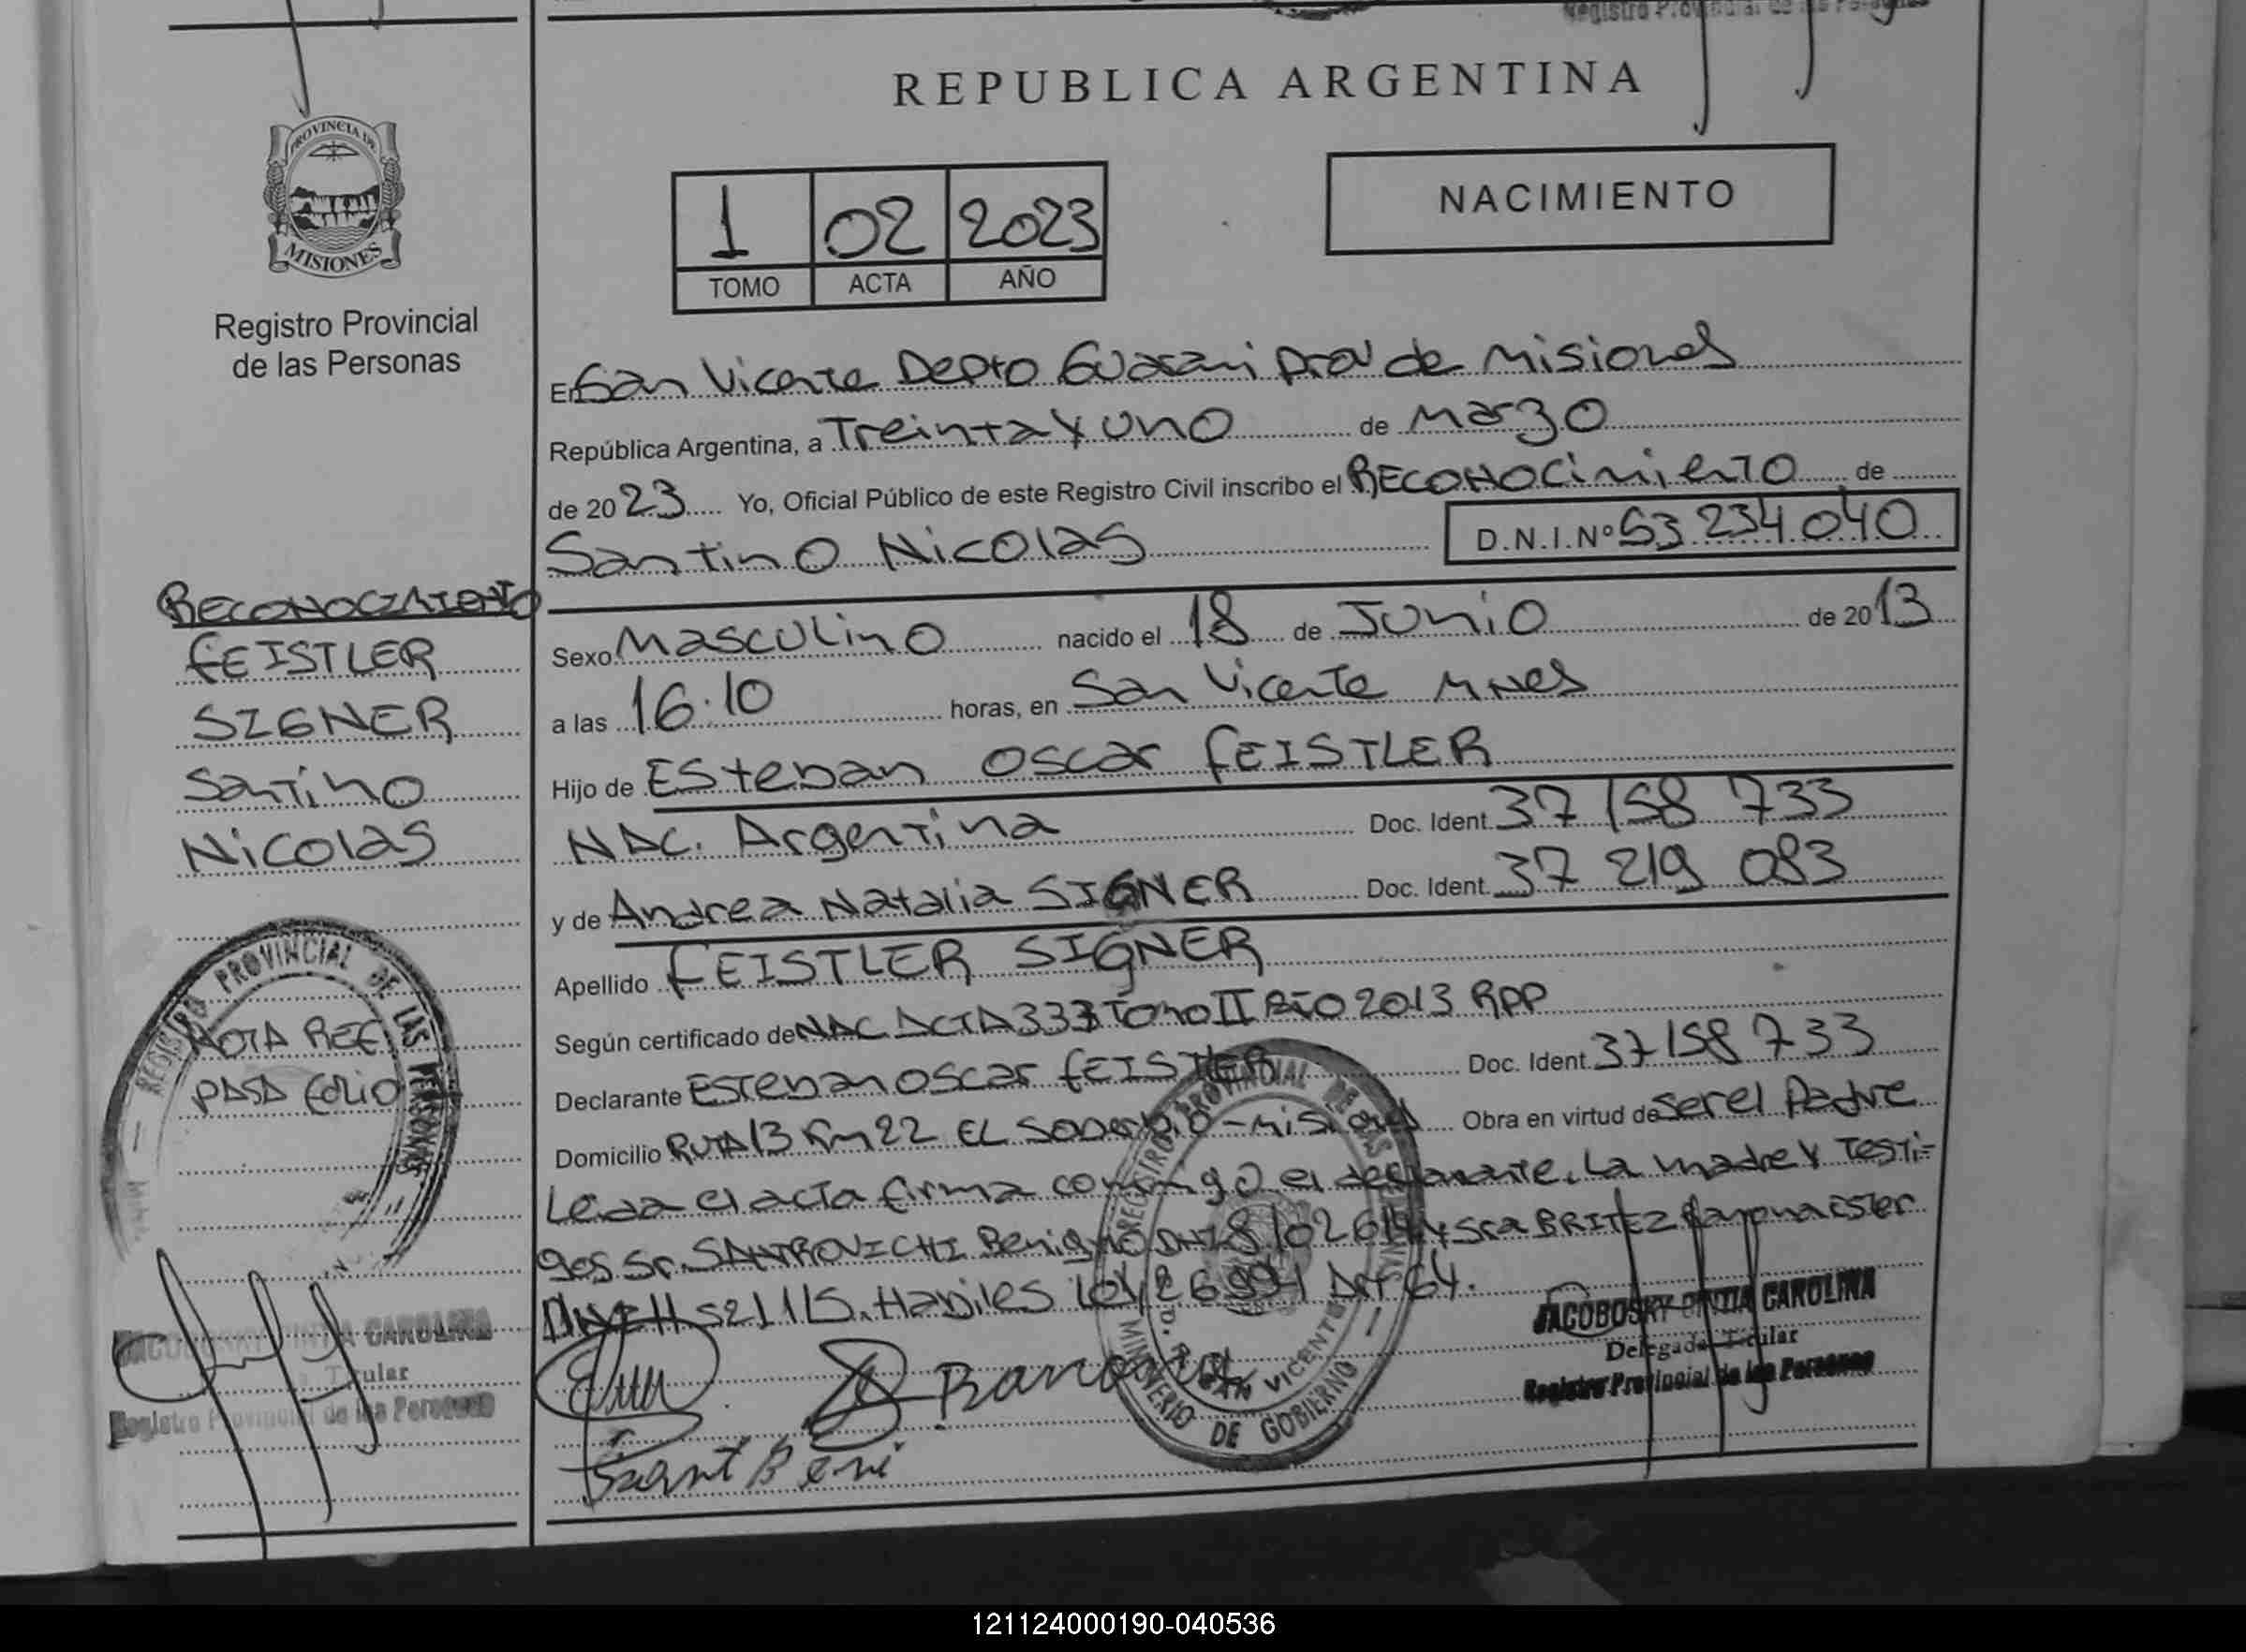 REPUBLICA ARGENTINA
PROVINCIA DE
MISIONES
Registro Provincial
de las Personas
1 02 2023
TOMO ACTA AÑO
NACIMIENTO
En San Vicente Depto Guarani prov de Misiones
República Argentina, a Treinta y uno de Marzo
de 2023 Yo, Oficial Público de este Registro Civil inscribo el RECONOCimiento de
Santino Nicolas D.N.I.Nº 53 234 040
RECONOCIMIENTO
FEISTLER
SIGNER
Santino
Nicolas
Sexo Masculino nacido el 18 de Junio de 2013
a las 16.10 horas, en San Vicente Mnes
Hijo de Esteban Oscar FEISTLER
NAC. Argentina Doc. Ident. 37 158 733
y de Andrea Natalia SIGNER Doc. Ident. 37 219 083
Apellido FEISTLER SIGNER
Según certificado de NAC ACTA 333 Tomo II Año 2013 RPP
Declarante Esteban Oscar FEISTLER Doc. Ident. 37 158 733
Domicilio RUTA 13 Km 22 EL Soberbio - Misiones Obra en virtud de ser el Padre
Leida el acta firma conmigo el declarante, La madre y Testi-
gos Sr. SANTROVICHI Benigno y Sra BRITEZ Ramona Ester
Habiles Art 64.
NOTA REF
PASA FOLIO
REGISTRO PROVINCIAL DE LAS PERSONAS
REGISTRO PROVINCIAL DE LAS
SAN VICENTE
MINISTERIO DE GOBIERNO
JACOBOSKY CINTIA CAROLINA
Delegada Titular
Registro Provincial de las Personas
CAROLINA
Titular
Registro Provincial de las Personas
121124000190-040536